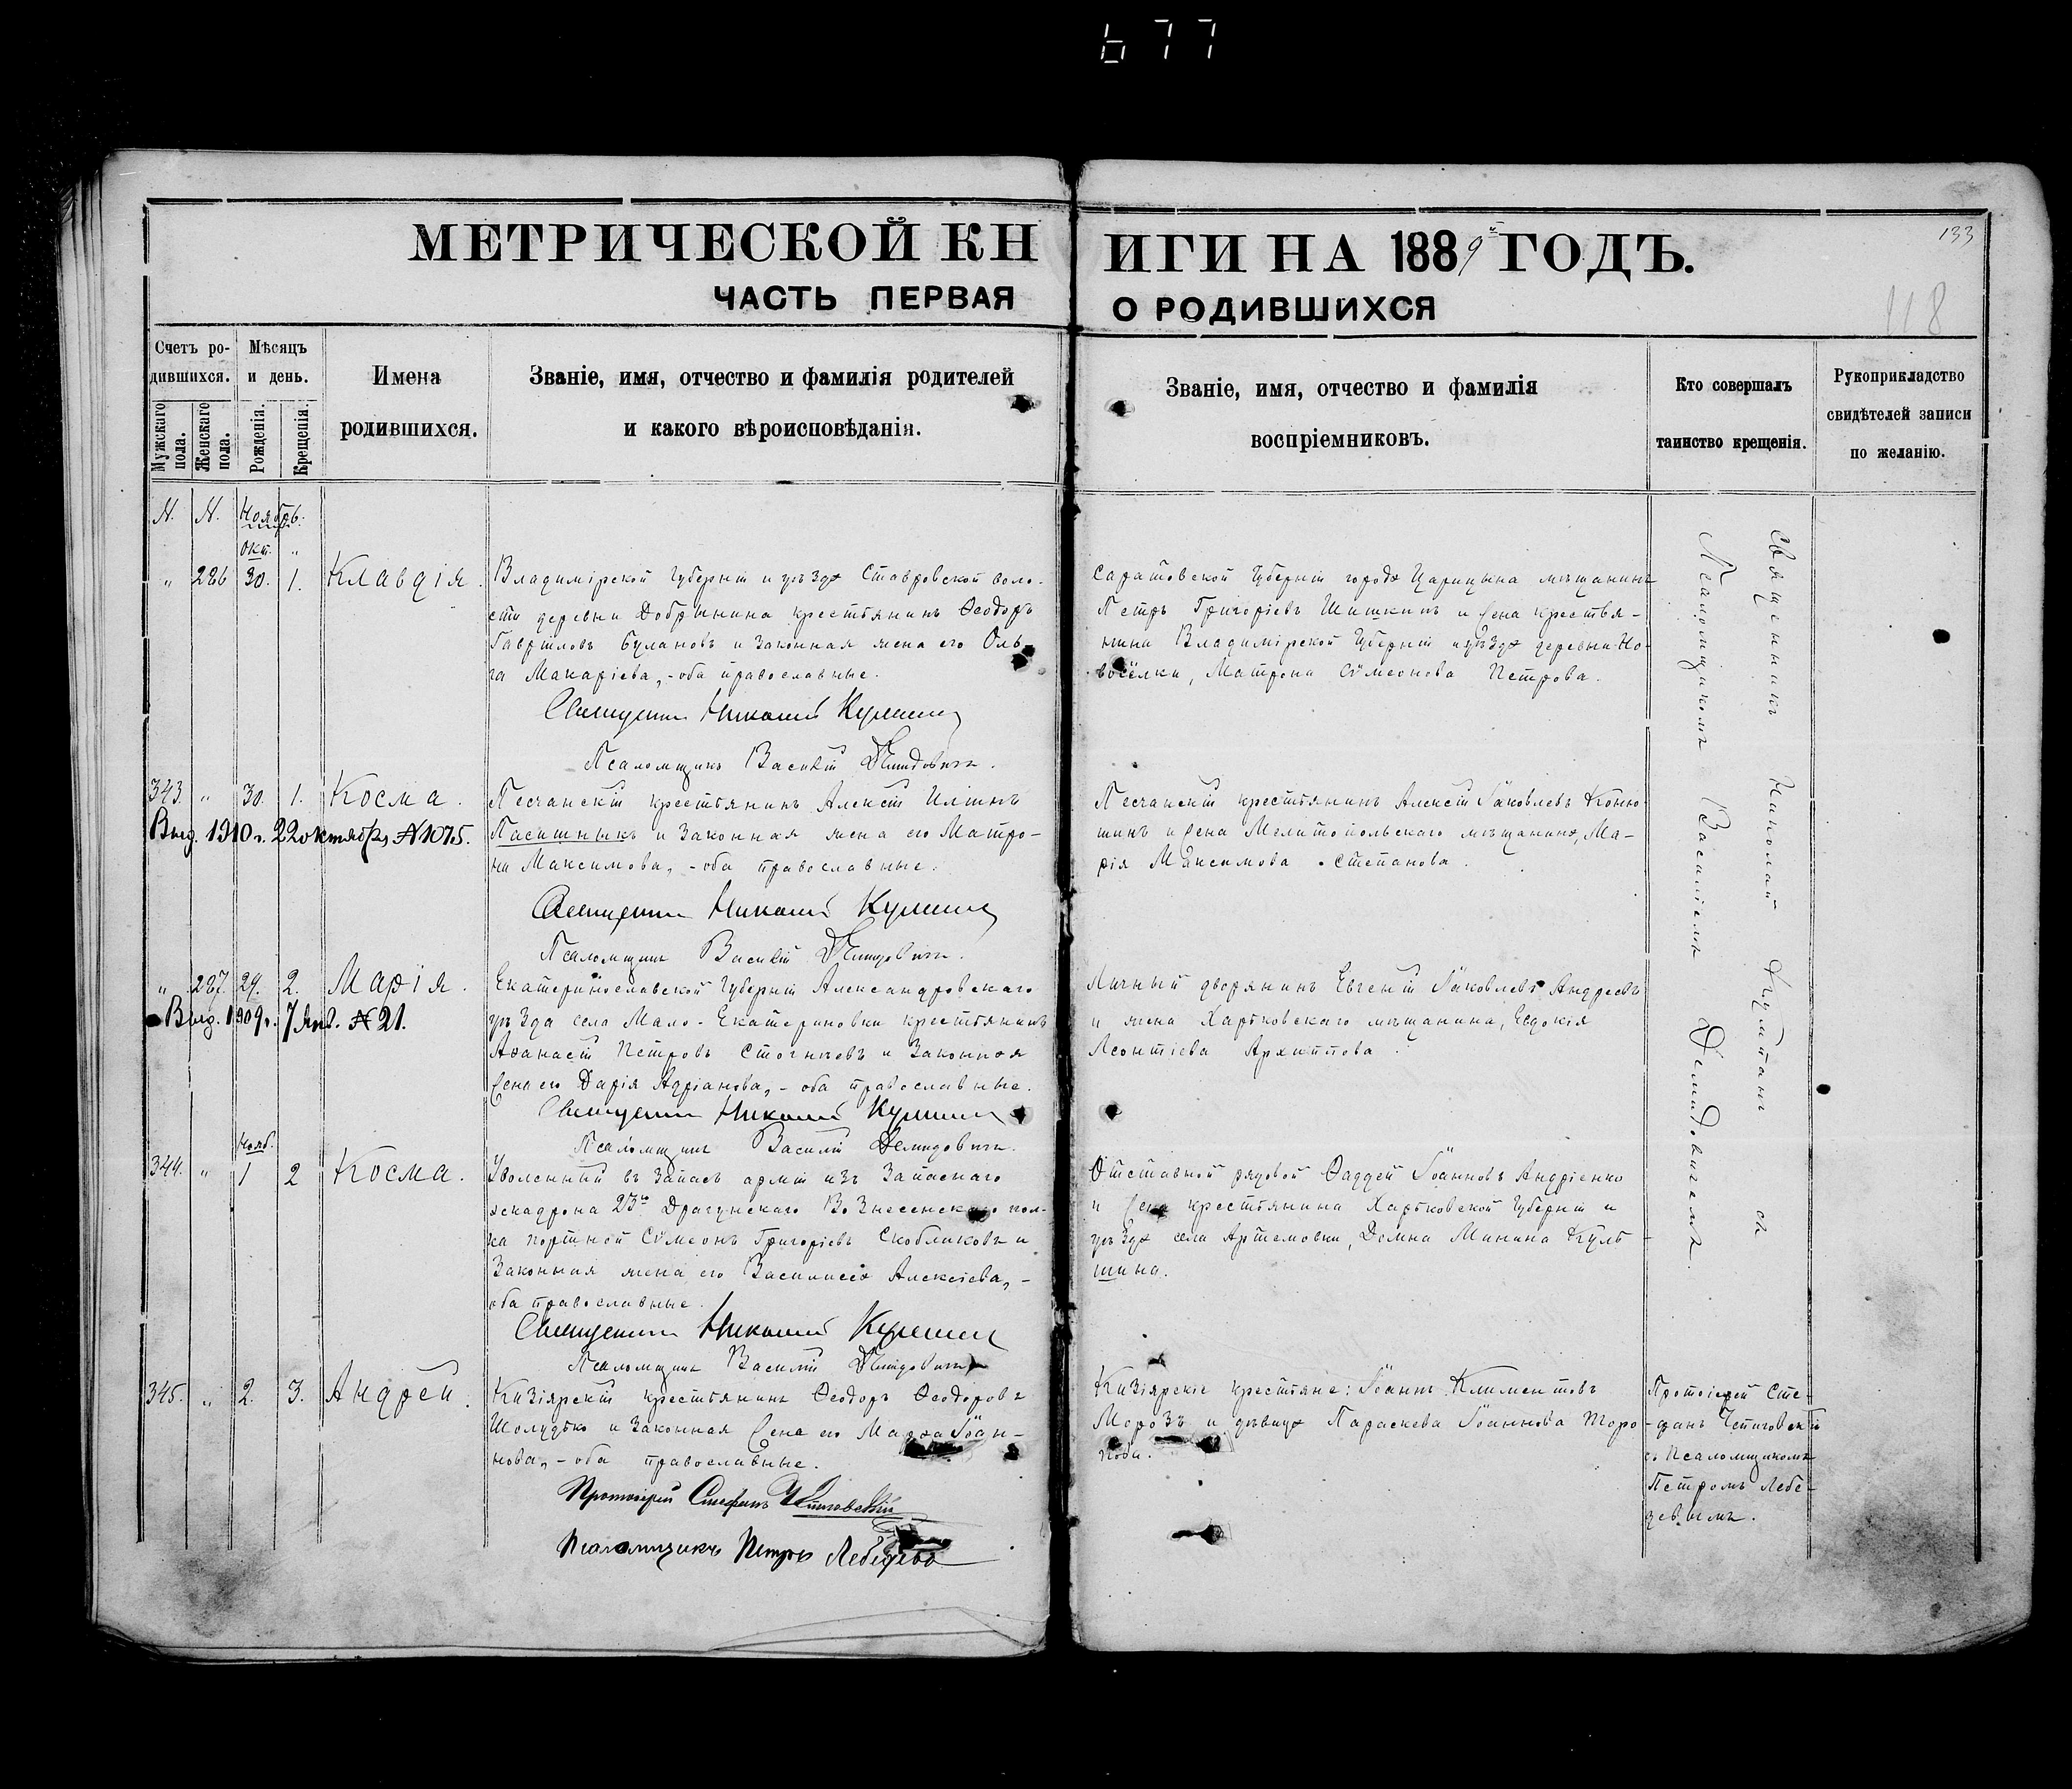 677
МЕТРИЧЕСКОЙ КНИГИ НА 1889й ГОДЪ.
133
ЧАСТЬ ПЕРВАЯ О РОДИВШИХСЯ
118
Счетъ ро-
дившихся.
Мужскаго пола.
Женскаго пола.
Мѣсяцъ
и день.
Рожденія.
Крещенія.
Имена
родившихся.
Званіе, имя, отчество и фамилія родителей
и какого вѣроисповѣданія.
Званіе, имя, отчество и фамилія
воспріемниковъ.
Кто совершалъ
таинство крещенія.
Рукоприкладство
свидѣтелей записи
по желанію.
N. N. Ноябрь.
Окт. "
" 286 30. 1. Клавдія.
Владимірской губерніи и уѣзда Ставровской воло-
сти деревни Добрынина крестьянинъ Ѳеодоръ
Гавріиловъ Булановъ и законная жена его Оль-
га Макаріева, - оба православные.
Священникъ Николай
Псаломщикъ Василій Демидовичъ.
Саратовской губерніи города Царицына мѣщанинъ
Петръ Григоріевъ Шишкинъ и жена крестья-
нина Владимірской губерніи и уѣзда деревни Но-
восёлки, Матрона Сѵмеонова Петрова.
343. " 30. 1. Косма.
Выд. 1910 г. 22 октября N 1075.
Песчанскій крестьянинъ Алексій Иліинъ
Пасишныкъ и законная жена его Матро-
на Максимова, - оба православные.
Священникъ Николай
Псаломщикъ Василій Демидовичъ.
Песчанскій крестьянинъ Алексій Іаковлевъ Коню-
шинъ и жена Мелитопольскаго мѣщанина, Ма-
рія Максимова Степанова.
" 287. 29. 2. Марія.
Выд. 1909 г. 7 Янв. N 21.
Екатеринославской губерніи Александровскаго
уѣзда села Мало-Екатериновки крестьянинъ
Аѳанасій Петровъ Стогніевъ и законная
жена его Дарія Адріанова, - оба православные.
Священникъ Николай
Псаломщикъ Василій Демидовичъ.
Личный дворянинъ Евгеній Іаковлевъ Андреевъ
и жена Харьковскаго мѣщанина, Евдокія
Леонтіева Архиппова.
Нояб.
344. " 1 2 Косма.
Уволенный въ запасъ арміи изъ запаснаго
эскадрона 23го Драгунскаго Вознесенскаго пол-
ка портной Сѵмеонъ Григоріевъ Скобликовъ и
законная жена его Василисса Алексіева, -
оба православные.
Священникъ Николай
Псаломщикъ Василій Демидовичъ
Отставной рядовой Ѳаддей Іоанновъ Андріенко
и жена крестьянина Харьковской губерніи и
уѣзда села Артемовки, Домна Минина Куль-
шина.
345. " 2. 3. Андрей.
Кизіярскій крестьянинъ Ѳеодоръ Ѳеодоровъ
Шолудько и законная жена его Марѳа Іоан-
нова, - оба православные.
Протоіерей Стефанъ
Псаломщикъ Петръ Лебедевъ
Кизіярскіе крестьяне: Іоаннъ Климентовъ
Морозъ и дѣвица Параскева Іоаннова Торо-
пова.
Священникъ Николай
съ
Псаломщикомъ Василіемъ Демидовичемъ.
Протоіерей Сте-
фанъ
съ псаломщикомъ
Петромъ Лебе-
девымъ.